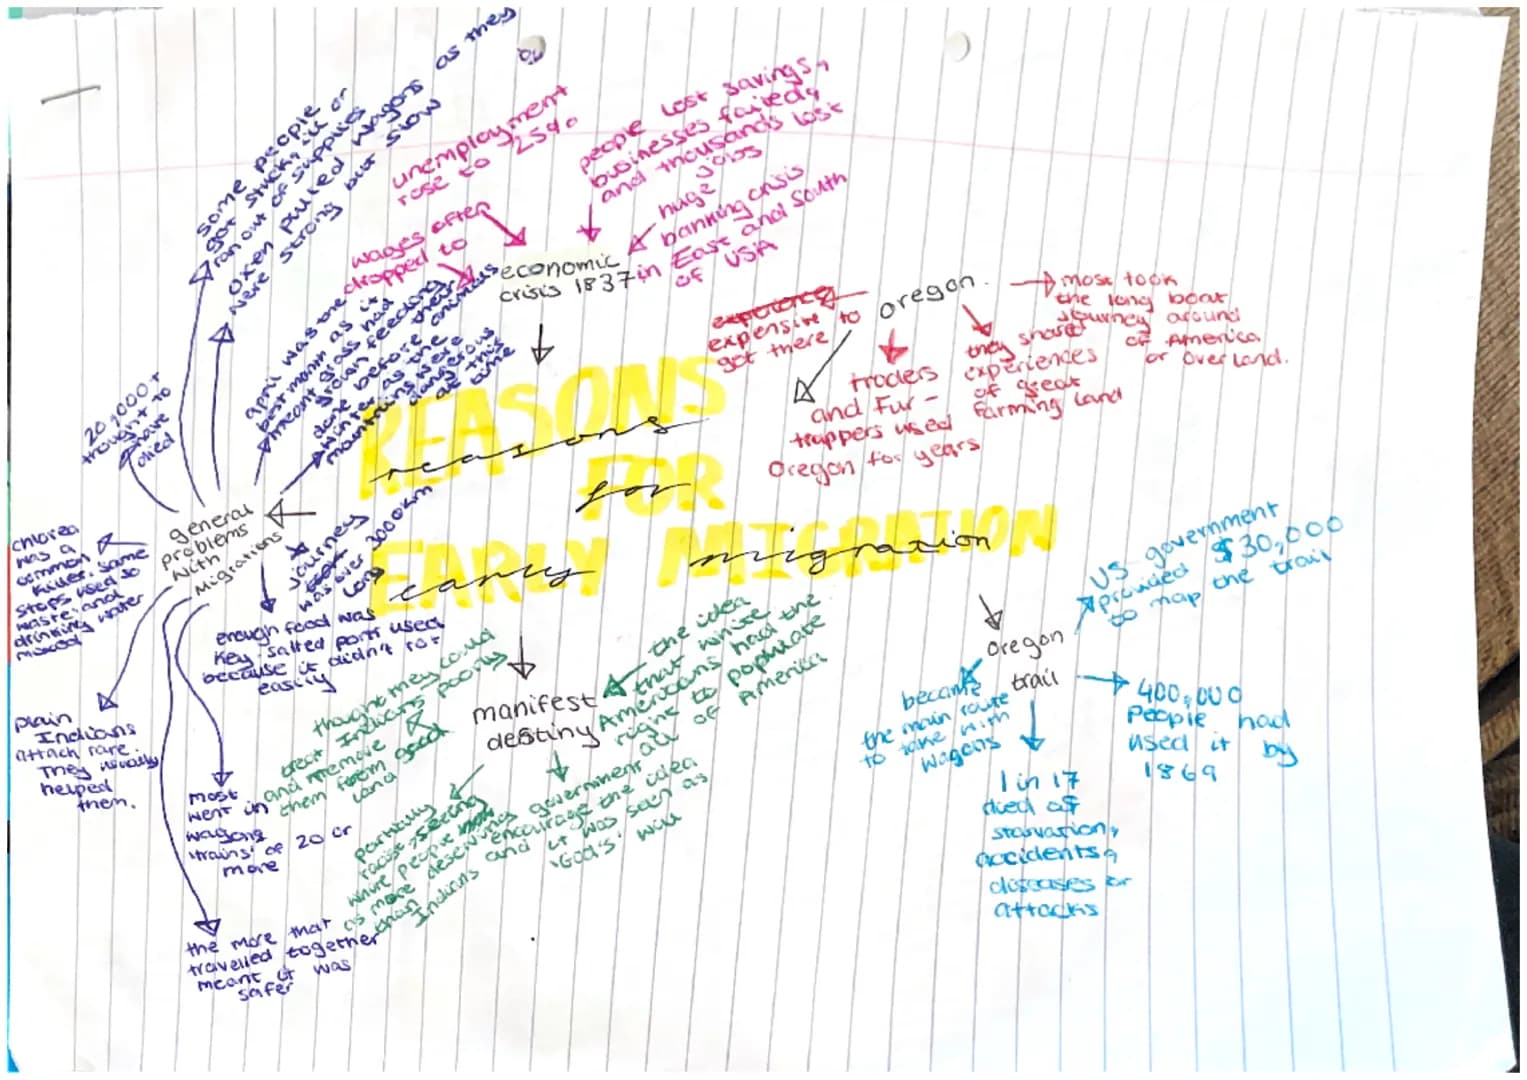 REASONS
FOR
EARLY MIGRATION
reasons
for
early migration
economic
crisis 1837
unemployment
rose to 25%
wages often
dropped to
people lost savings,
businesses failed,
and thousands lost
jobs
huge
banking crisis
in East and South
of USA
oregon
expensive to
get there
traders
and fur-
trappers used
Oregon for years
they shared
experiences
of great
farming land
most took
the long boat
journey around
of America
or overland.
oregon
trail
US government
provided $30,000
to map the trail
400,000
people had
used it by
1869
1 in 17
died of
starvation,
accidents,
diseases or
attacks
became
the main route
to take with
wagons
manifest
destiny
the idea
that white
Americans had the
right to populate
all of America
government
encourage the idea
and it was seen as
'God's' will
partially
racist, seeing
white people
as more deserving
than Indians
thought they could
treat Indians poorly
and remove
them from good
land
general
problems
with
migrations
some people
got stuck, ill or
ran out of supplies
oxen pulled wagons as they
were strong but slow
april was the
best month as it
meant grass had
grown feeding
their animals
done before
winter as the
mountains were
dangerous
at this
time
20,000+
thought to
have
died
cholrea
was a
common
killer. some
stops used so
waste and
drinking water
mixed
plain
Indians
attack rare.
They usually
helped
them.
most
went in
wagons
'trains' of 20 or
more
the more that
travelled together
meant it was
safer
enough food was
key, salted pork used
because it didn't rot
easily
journey
was over 3000km
long